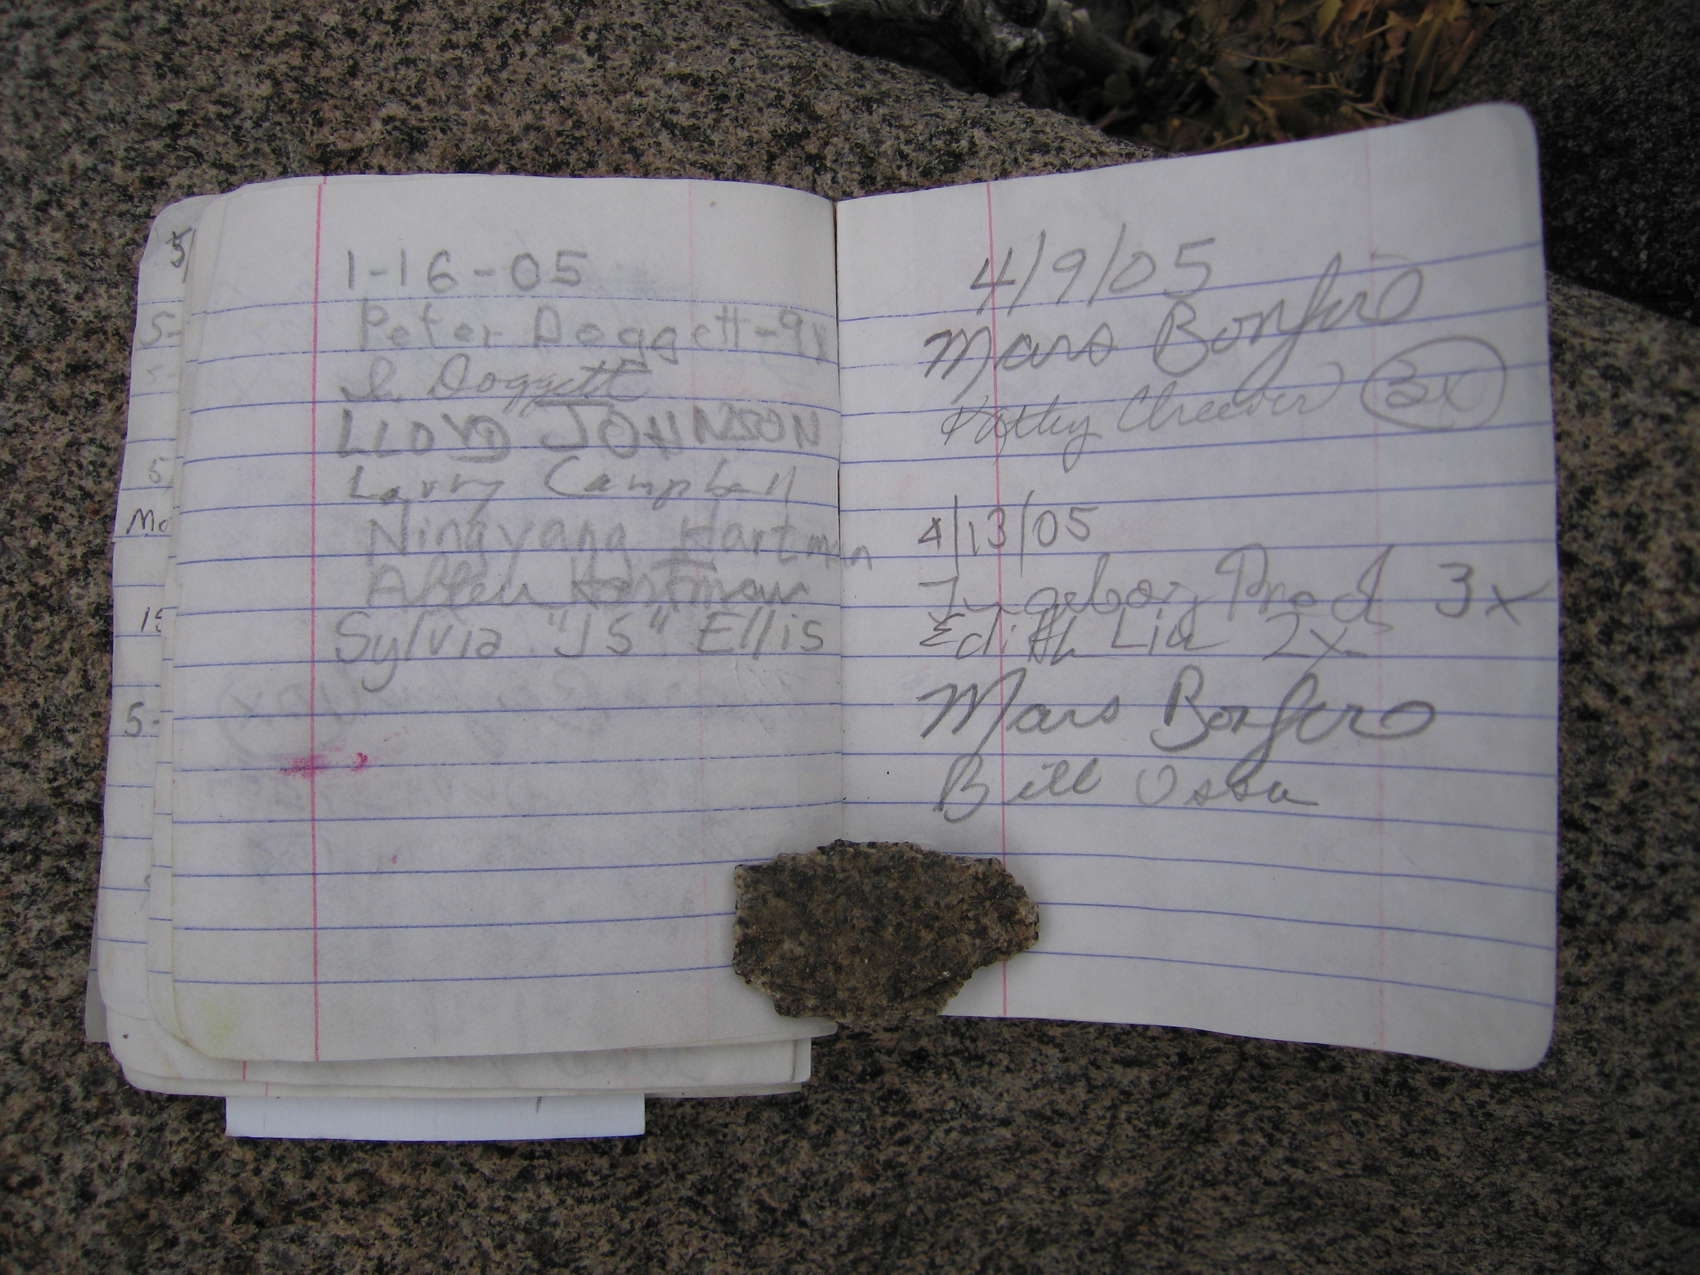 5/
5-
5
Mo
15
5-
1-16-05
Peter Doggett-9x
I. Doggett
LLOYD JOHNSON
Larry Campbell
Ningyang Hartman
Allen Hartman
Sylvia "JS" Ellis
4/9/05
Mars Bonfire
Kathy Cheever 3x
4/13/05
Ingeborg Prochazka 3x
Edith Liu 2x
Mars Bonfire
Bill Ossa